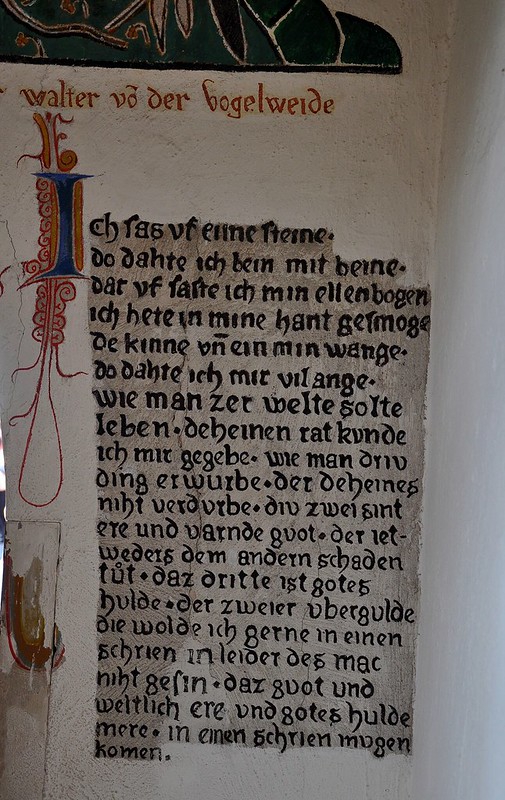 walter vō der vogelweide
Ich sas vf eime steine·
do dahte ich bein mit beine·
dar vf saste ich min ellenbogen
ich hete in mine hant gesmoge
de kinne vn̄ ein min wange·
do dahte ich mir vil ange·
wie man zer welte solte
leben·deheinen rat kvnde
ich mir gegebe· wie man driv
ding erwurbe·der deheines
niht verdvrbe·div zwei sint
ere und varnde gvot·der iet-
weders dem andern schaden
tůt·daz dritte ist gotes
hulde·der zweier vbergulde
die wolde ich gerne in einen
schrien in leider des mac
niht gesin·daz gvot und
weltlich ere vnd gotes hulde
mere·in einen schrien mvgen
komen.